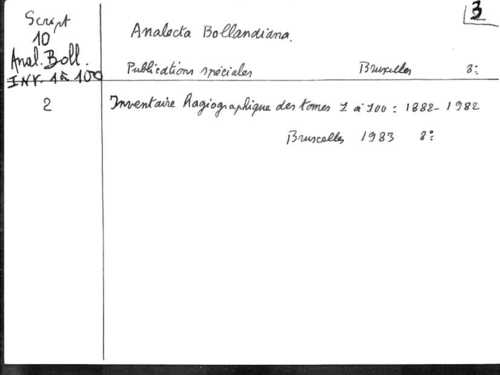 3
Script
10
Anal. Boll.
INV. 1 à 100
Analecta Bollandiana.
Publications spéciales Bruxelles 8º
2
Inventaire hagiographique des tomes 1 à 100 : 1882-1982
Bruxelles 1983 8º